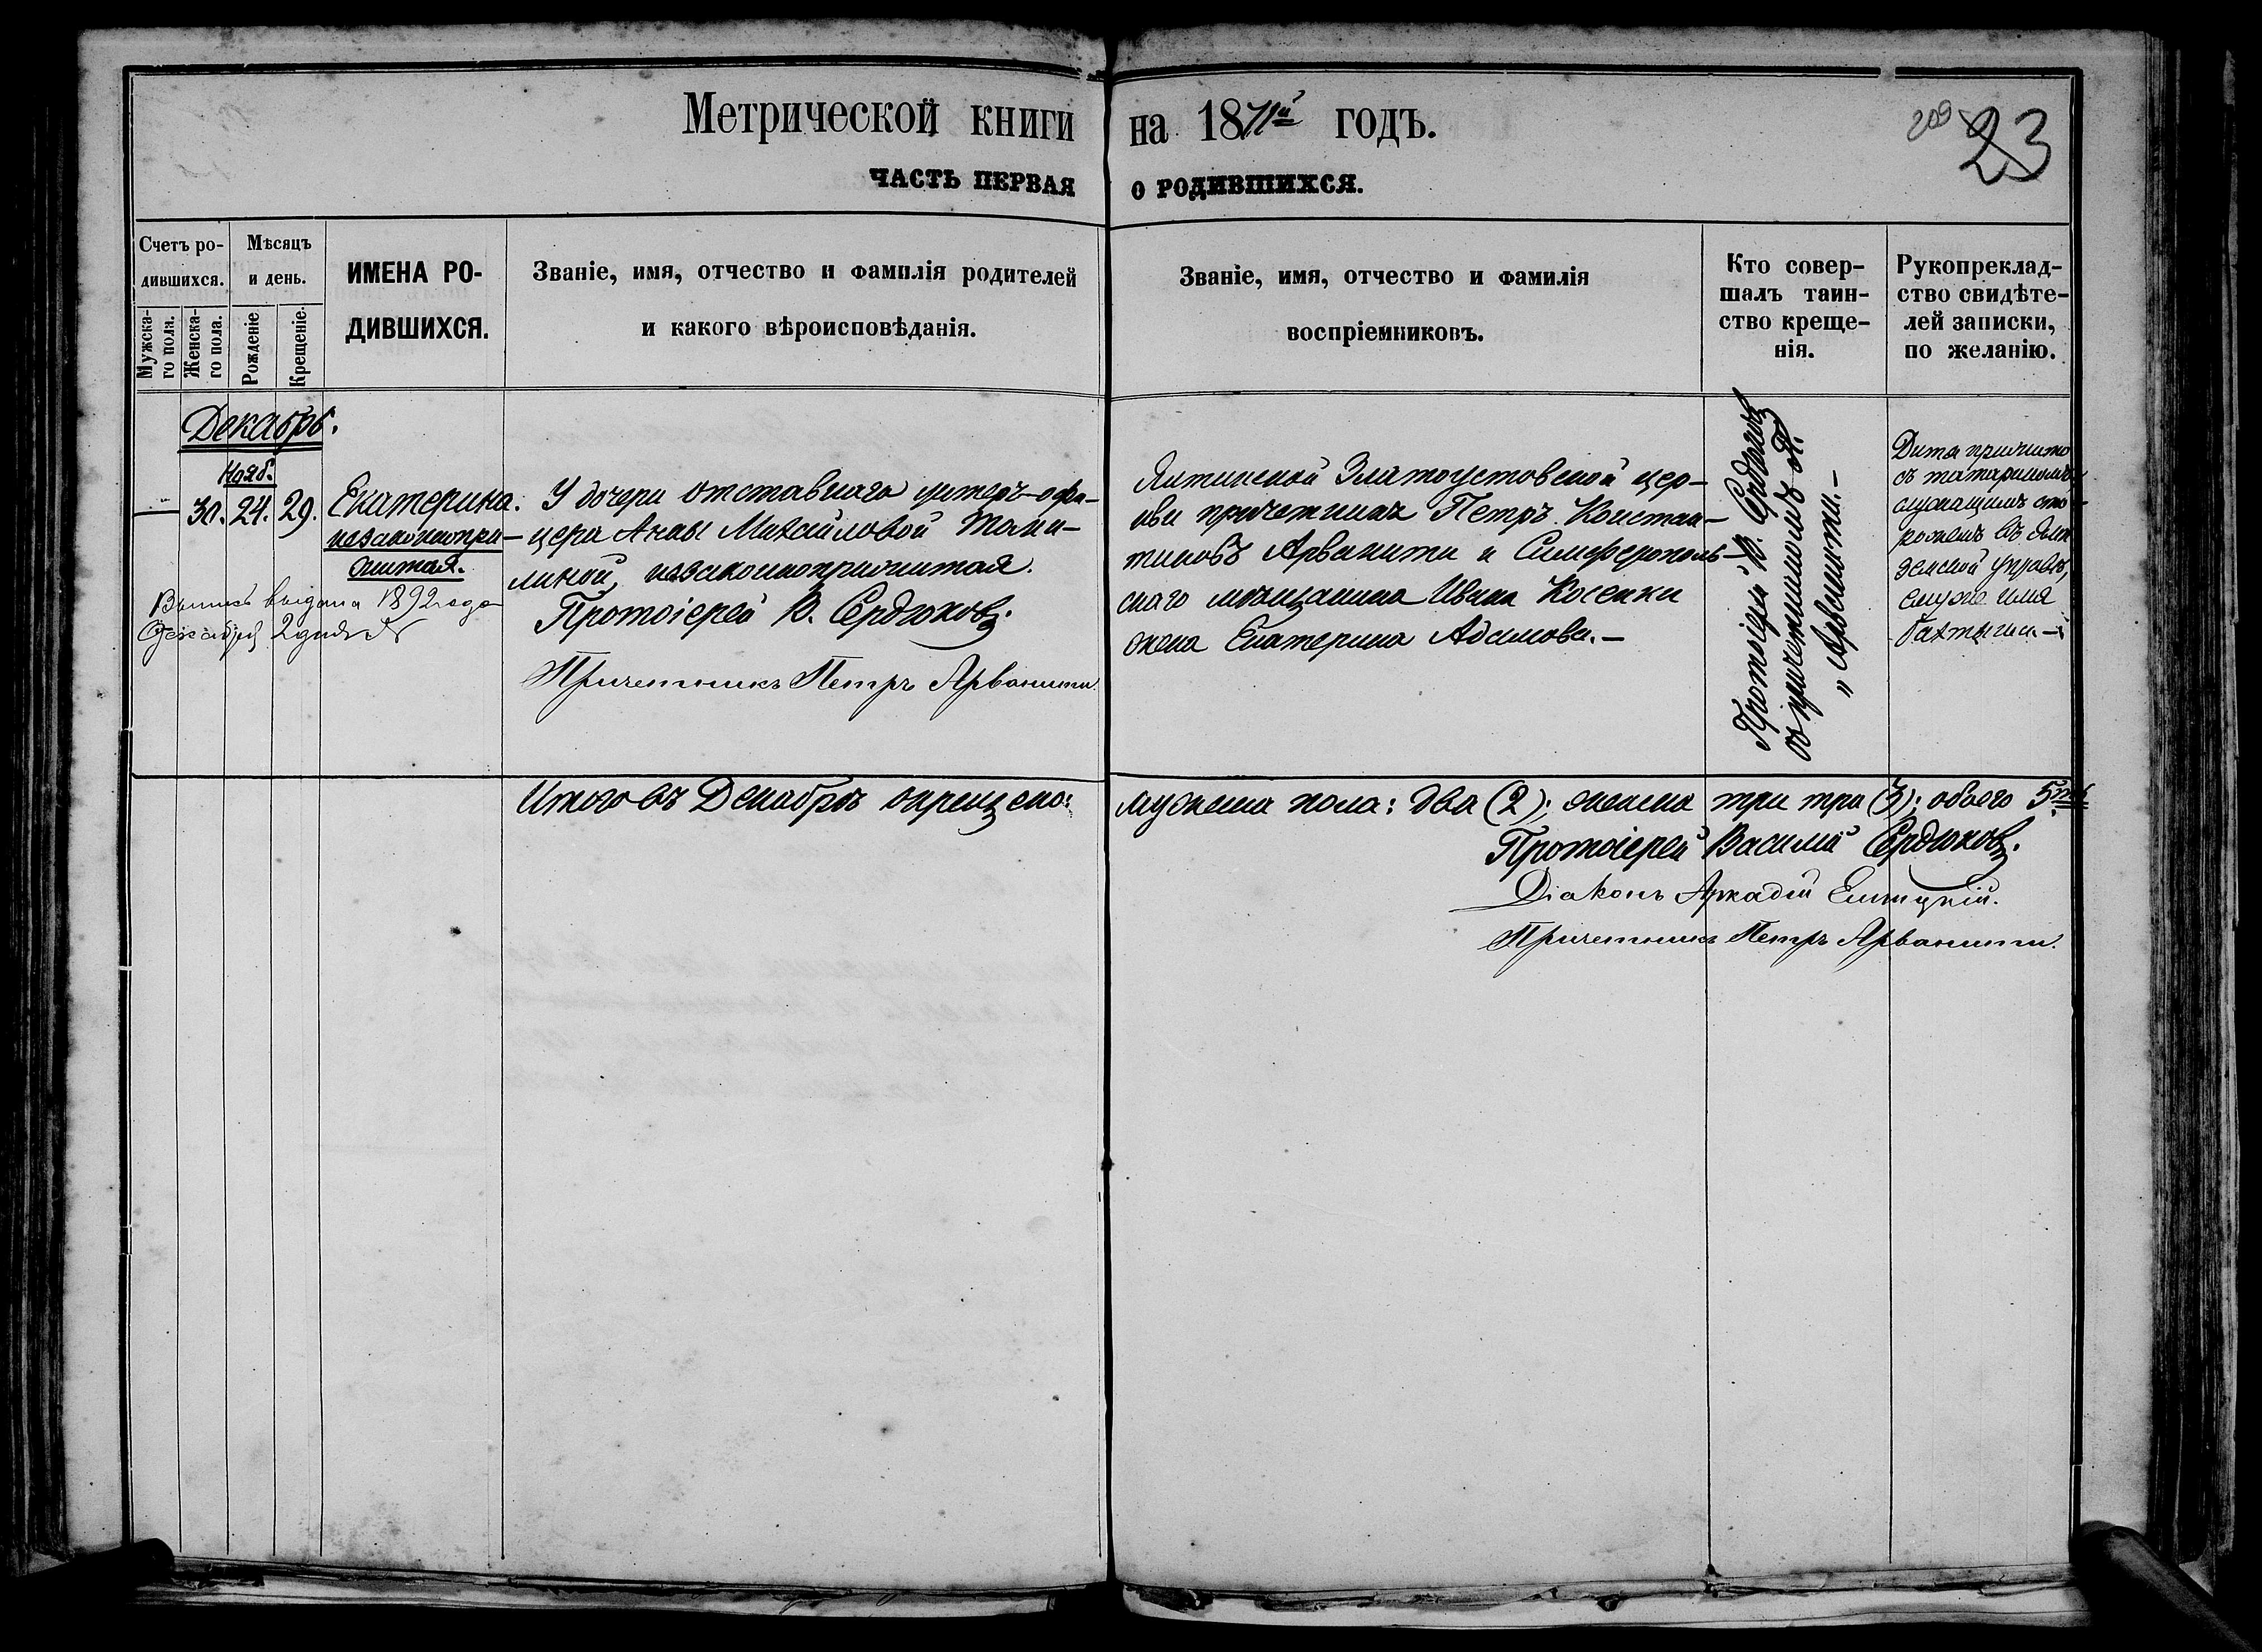 Метрической книги на 1871й годъ.
209 23
ЧАСТЬ ПЕРВАЯ О РОДИВШИХСЯ.
Счетъ ро-
дившихся.
Мѣсяцъ
и день.
Мужска-
го пола.
Женска-
го пола.
Рожденіе
Крещеніе.
ИМЕНА РО-
ДИВШИХСЯ.
Званіе, имя, отчество и фамилія родителей
и какого вѣроисповѣданія.
Званіе, имя, отчество и фамилія
воспріемниковъ.
Кто совер-
шалъ таин-
ство креще-
нія.
Рукоприклад-
ство свидѣте-
лей записки,
по желанію.
Декабрь.
Нояб.
30. 24. 29.
Екатерина.
незаконнопри-
житая.
Выпись выдана 1892 года
Декабря 2 дня №
У дочери отставнаго унтеръ-офи-
цера Анны Михайловой Томи-
линой, незаконноприжитая.
Протоіерей В. Сердюковъ.
Причетникъ Петръ Арванити.
Ялтинской Златоустовской цер-
кви причетникъ Петръ Констан-
тиновъ Арванити и Симферополь-
скаго мѣщанина Ивана Косенки
жена Екатерина Адамова.—
Протоіерей В. Сердюковъ
съ причетникомъ П.
„ Арванити.—
Дитя прижито
съ татариномъ
служащимъ сто-
рожемъ въ Ялт.
земской управѣ,
ему же имя
Итого въ Декабрѣ окрещено:
мужеска пола: два (2); женска три три (3); обоего 5ть
Протоіерей Василій Сердюковъ.
Діаконъ Аркадій
Причетникъ Петръ Арванити.